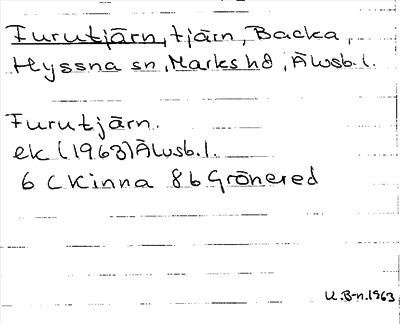 Furutjärn, tjärn, Backa,
Hyssna sn, Marks hd, Älvsb. l.
Furutjärn.
ek (1963) Älvsb. l.
6 C Kinna 8 b Grönered
U. B-n. 1963